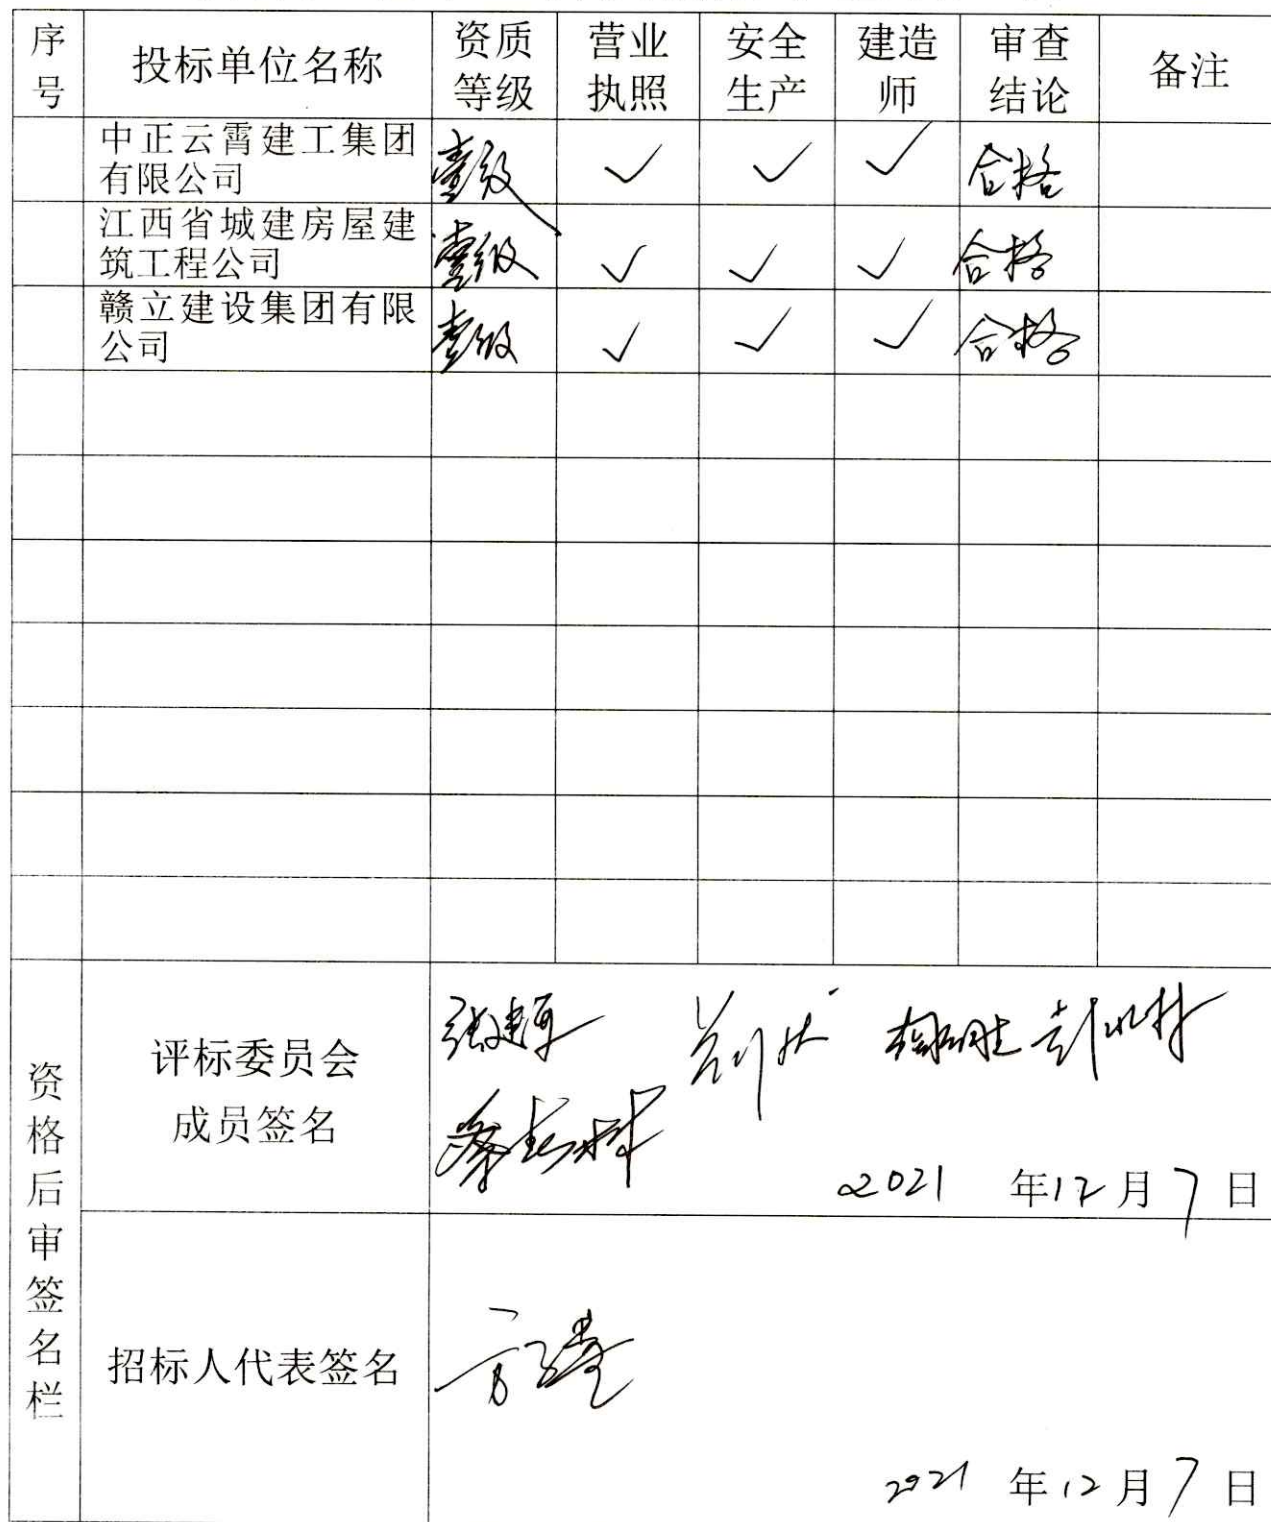 序号 投标单位名称 资质等级 营业执照 安全生产 建造师 审查结论 备注
中正云霄建工集团有限公司 壹级 ✓ ✓ ✓ 合格
江西省城建房屋建筑工程公司 壹级 ✓ ✓ ✓ 合格
赣立建设集团有限公司 壹级 ✓ ✓ ✓ 合格
资格后审签名栏
评标委员会
成员签名
2021 年12月7日
招标人代表签名
2021 年12月7日